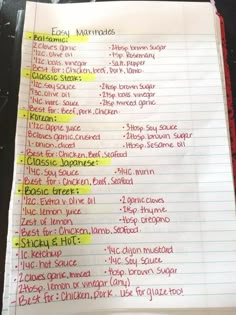 Easy Marinades
• Balsamic:
2 cloves garlic • 2tbsp brown sugar
1/2c. olive oil • 1tsp. Rosemary
1/2c. bals. vinegar • Salt, pepper
Best for: Chicken, beef, pork, lamb.
• Classic Steak:
1/2c. Soy sauce • 2tbsp brown sugar
1/3c. olive oil • 2tsp bals vinegar
1/4c. worc. sauce • 2tsp minced garlic
Best for: Beef, pork, chicken
• Korean:
1/2c. apple juice • 3tbsp. Soy sauce
8 cloves garlic, crushed • 2tbsp. brown sugar
1 onion, diced • 1tbsp. Sesame oil
Best for: Chicken, Beef, Seafood
• Classic Japanese:
1/4c. Soy Sauce • 3/4c mirin
Best for: Chicken, Beef, Seafood
• Basic Greek:
1/2c. Extra v. olive oil • 2 garlic cloves
1/4c. lemon juice • 1tsp. thyme
Zest of lemon • 1tsp oregano
Best for: Chicken, lamb, Seafood
• Sticky & Hot:
1c. Ketchup • 1/4c. dijon mustard
1/4c. hot Sauce • 1/4c. Soy Sauce
2 cloves garlic, minced • 1tbsp. brown Sugar
2tbsp. lemon or vinegar (any)
- Best for: Chicken, pork. Use for glaze too!